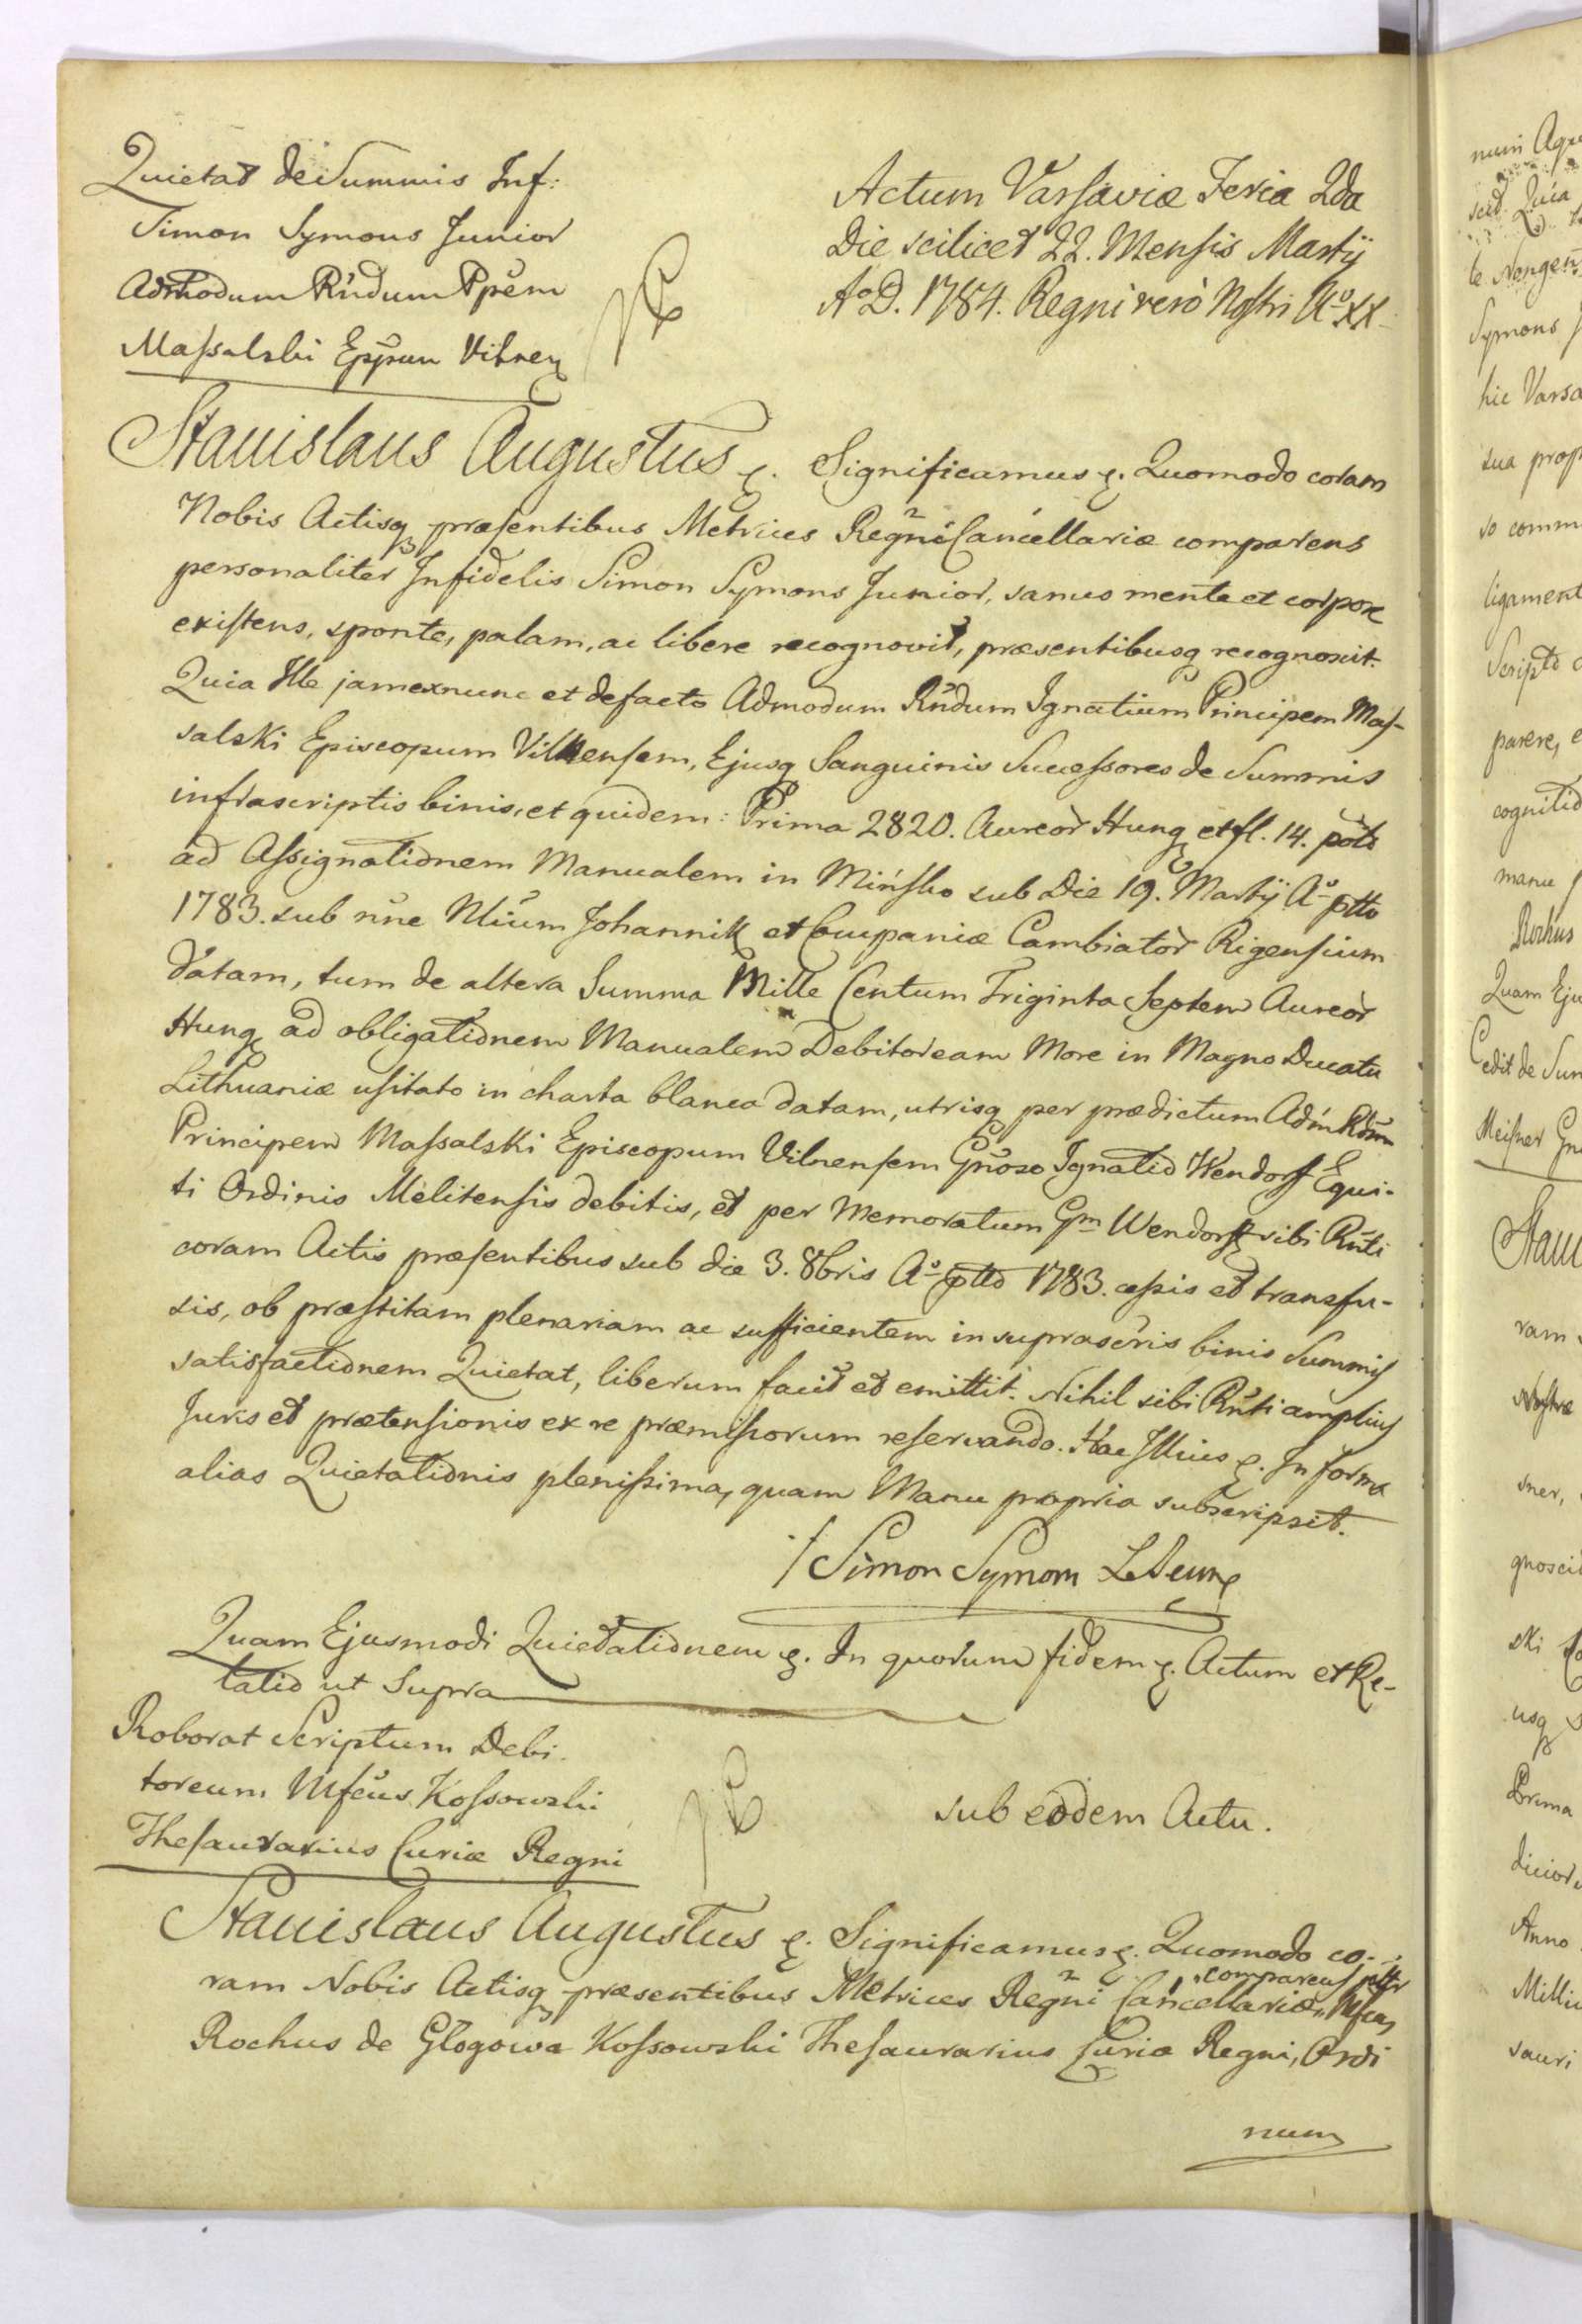 Quietat de Summis Inf:
Simon Symons Junior
Admodum Rńdum Ppem
Massalski Eppum Vilneñ
Actum Varsaviæ Feria 2da
Die scilicet 22. Mensis Martij
Aº D. 1784. Regni verò Nostri Aº XX
Stanislaus Augustus &. Significamus &. Quomodo coram
Nobis Actisq præsentibus Metrices Regni Cancellariæ comparens
personaliter Infidelis Simon Symons Junior, sanus mente et corpore
existens, sponte, palam, ac libere recognovit, præsentibusq recognoscit.
Quia Ille jam exnunc et defacto Admodum Rńdum Ignatium Principem Mas-
salski Episcopum Vilnensem, Ejusq Sanguinis Successores de Summis
infrascriptis binis, et quidem: Prima 2820. Aureor Hung et fl. 14. pöls
ad Assignationem Manualem in Mińsko sub Die 19. Martij Aº ptto
1783. sub nne Nlium Johannik et Companiæ Cambiator Rigensium
datam, tum de altera Summa Mille Centum Triginta Septem Aureor
Hung ad obligationem Manualem Debitoream More in Magno Ducatu
Lithuaniæ usitato in charta blanca datam, utrisq per prædictum Adm Rdum
Principem Massalski Episcopum Vilnensem Gnoso Ignatio Wendorff Equi-
ti Ordinis Melitensis debitis, et per Memoratum Gm Wendorff sibi Rńti
coram Actis præsentibus sub die 3. 8bris Aº ptto 1783. cessis et transfu-
sis, ob præstitam plenariam ac sufficientem in suprascris binis Summis
satisfactionem Quietat, liberum facit et emittit. Nihil sibi Rńti amplius
Juris et prætensionis ex re præmissorum reservando. Hac Illius &. In forma
alias Quietationis plenissima, quam Manu propria subscripsit.
/ Simon Symons Le Jeune
Quam Ejusmodi Quietationem &. In quorum fidem &. Actum et Re-
latio ut Supra
Roborat Scriptum Debi-
toreum Mfcus Kossowski
Thesaurarius Curiæ Regni
sub eodem Actu.
Stanislaus Augustus &. Significamus &. Quomodo co-
ram Nobis Actisq præsentibus Metrices Regni Cancellariæ comparens plttr Mfcus
Rochus de Głogowa Kossowski Thesaurarius Curiæ Regni, Ordi
num